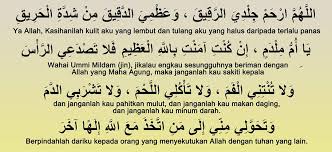 اللَّهُمَّ ارْحَمْ جِلْدِيَ الرَّقِيْقَ ، وَعَظْمِيَ الدَّقِيْقَ مِنْ شِدَّةِ الْحَرِيْقِ
Ya Allah, Kasihanilah kulit aku yang lembut dan tulang aku yang halus daripada terlalu panas
يَا أُمَّ مِلْدَمٍ ، إِنْ كُنْتِ آمَنْتِ بِاللَّهِ الْعَظِيْمِ فَلَا تَصْدَعِي الرَّأْسَ
Wahai Ummi Mildam (jin), jikalau engkau sesungguhnya beriman dengan
Allah yang Maha Agung, maka janganlah kau sakiti kepala
وَلَا تُنْتِنِي الْفَمَ ، وَلَا تَأْكُلِي اللَّحْمَ ، وَلَا تَشْرَبِي الدَّمَ
dan janganlah kau pahitkan mulut, dan janganlah kau makan daging,
dan janganlah kau minum darah.
وَتَحَوَّلِي مِنِّي إِلَى مَنِ اتَّخَذَ مَعَ اللَّهِ إِلَهًا آخَرَ
Berpindahlah dariku kepada orang yang menyekutukan Allah dengan tuhan yang lain.